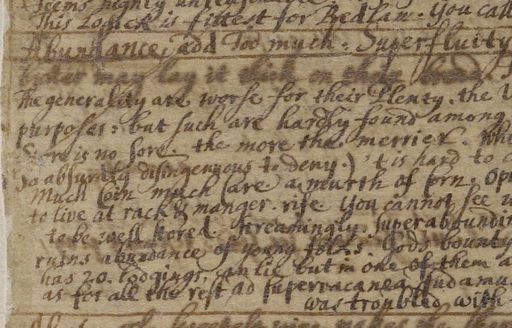 seems highly unreasonable
This Logick is fittest for Bedlam. You call
Abundance, add Too much. Superfluity
butter may lay it thick on their bread.
The generality are worse for their Plenty. the
purposes: but such are hardly found among
Store is no sore. the more the merrier.
so absurdly disingenuous to deny.) 't is hard to
Much coin much care a murth of corn.
to live at rack & manger. rife You cannot see
to be well stored. Exceedingly. superaboundin
ruins abundance of young folks. Gods bounty
has 20. lodgings, can lie but in one of them a
as for all the rest, ad supervacanea sudamu
was troubled with